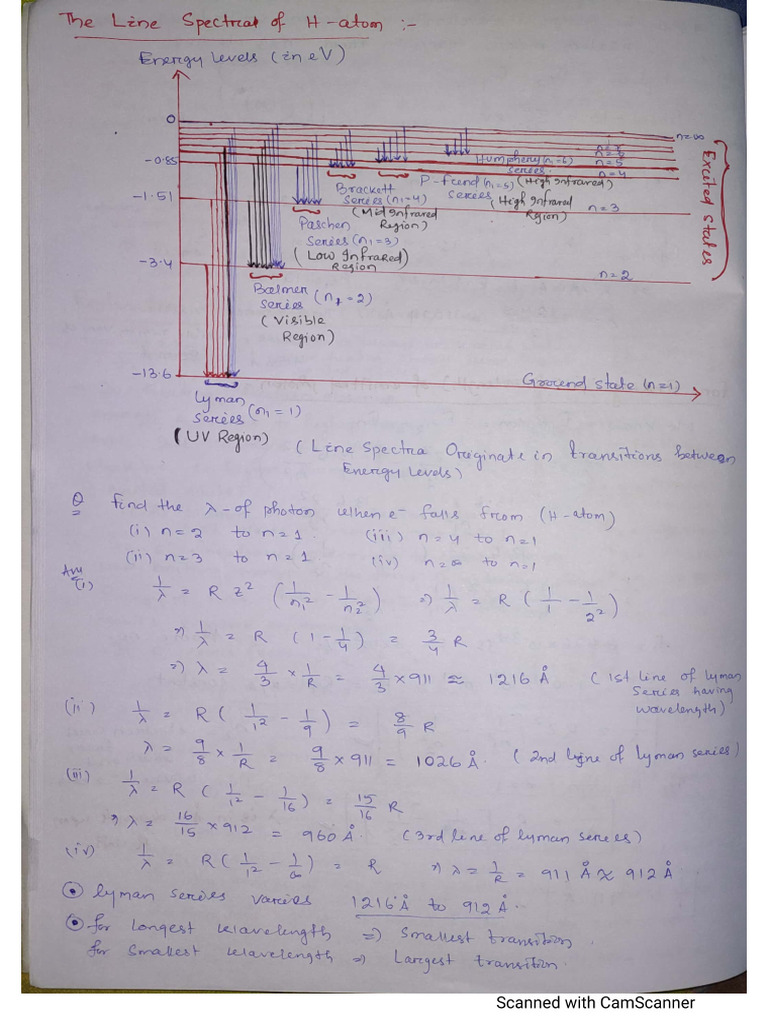 The Line Spectra of H-atom :-
Energy Levels (in eV)
0
n=∞
n=5
-0.85
n=4
Humphery (n₁=6)
series
Brackett
Series (n₁=4)
(Mid Infrared
Region)
P-fund (n₁=5)
series
(High Infrared)
(High Infrared
Region)
-1.51
n=3
Paschen
Series (n₁=3)
(Low Infrared)
Region
-3.4
n=2
Balmer
series (n₁=2)
(Visible
Region)
Excited states
-13.6
Ground state (n=1)
Lyman
Series (n₁=1)
(UV Region)
(Line Spectra Originate in transitions between
Energy levels)
Q Find the λ-of photon when e⁻ falls from (H-atom)
(i) n=2 to n=1 (iii) n=4 to n=1
(ii) n=3 to n=1. (iv) n=∞ to n=1
Ans
(i) 1/λ = R Z² (1/n₁² - 1/n₂²) ⇒ 1/λ = R (1/1 - 1/2²)
⇒ 1/λ = R (1 - 1/4) = 3/4 R
⇒ λ = 4/3 × 1/R = 4/3 × 911 ≈ 1216 Å (1st line of lyman
Series having
wavelength)
(ii) 1/λ = R (1/1² - 1/9) = 8/9 R
λ = 9/8 × 1/R = 9/8 × 911 = 1026 Å. (2nd line of lyman series)
(iii) 1/λ = R (1/1² - 1/16) = 15/16 R
⇒ λ = 16/15 × 912 = 960 Å. (3rd line of lyman series)
(iv) 1/λ = R (1/1² - 1/∞) = R ⇒ λ = 1/R = 911 Å ≈ 912 Å
lyman series varies 1216 Å to 912 Å.
for longest wavelength ⇒ Smallest transition.
for Smallest wavelength ⇒ Largest transition.
Scanned with CamScanner